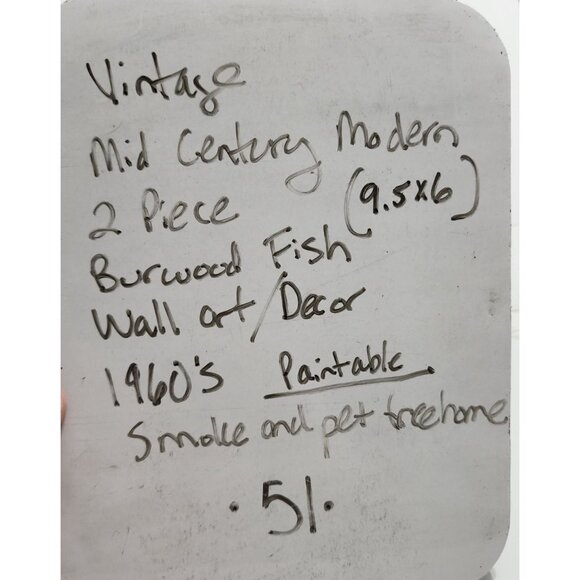 Vintage
Mid Century Modern
2 Piece (9.5x6)
Burwood Fish
Wall art/Decor
1960's Paintable
Smoke and pet free home
. 51.